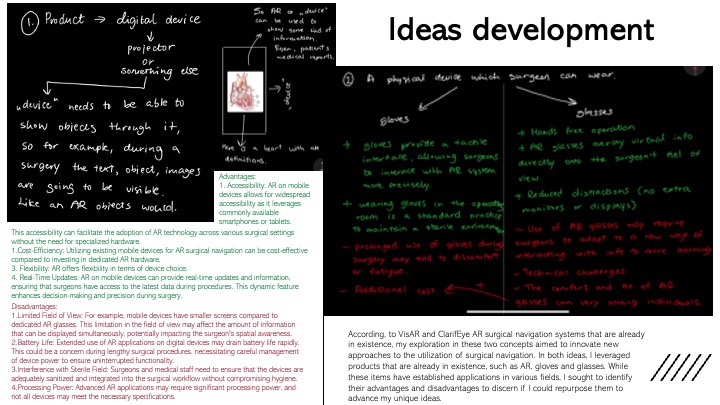 Ideas development
1. Product → digital device
projector
or
something else
"device" needs to be able to
show objects through it,
so for example, during a
surgery the text, object, images
are going to be visible.
Like an AR objects would.
So AR or "device"
can be used to
show some kind of
information.
Even, patient's
medical reports.
"device"
Here is a heart with all
definitions.
Advantages:
1. Accessibility: AR on mobile
devices allows for widespread
accessibility as it leverages
commonly available
smartphones or tablets.
This accessibility can facilitate the adoption of AR technology across various surgical settings
without the need for specialized hardware.
1.Cost-Efficiency: Utilizing existing mobile devices for AR surgical navigation can be cost-effective
compared to investing in dedicated AR hardware.
3. Flexibility: AR offers flexibility in terms of device choice.
4. Real-Time Updates: AR on mobile devices can provide real-time updates and information,
ensuring that surgeons have access to the latest data during procedures. This dynamic feature
enhances decision-making and precision during surgery.
Disadvantages:
1.Limited Field of View: For example, mobile devices have smaller screens compared to
dedicated AR glasses. This limitation in the field of view may affect the amount of information
that can be displayed simultaneously, potentially impacting the surgeon's spatial awareness.
2.Battery Life: Extended use of AR applications on digital devices may drain battery life rapidly.
This could be a concern during lengthy surgical procedures, necessitating careful management
of device power to ensure uninterrupted functionality.
3.Interference with Sterile Field: Surgeons and medical staff need to ensure that the devices are
adequately sanitized and integrated into the surgical workflow without compromising hygiene.
4.Processing Power: Advanced AR applications may require significant processing power, and
not all devices may meet the necessary specifications.
2 A physical device which surgeon can wear.
gloves
+ gloves provide a tactile
interface, allowing surgeons
to interact with AR system
more precisely.
+ wearing gloves in the operating
room is a standard practice
to maintain a sterile enviroment
- prolonged use of gloves during
surgery may lead to discomfort
or fatigue.
- Additional cost.
glasses
+ Hands free operation
+ AR glasses overlay virtual info
directly onto the surgeon't fiel of
view.
+ Reduced distractions (no extra
monitors or displays)
- Use of AR glasses may require
surgeons to adapt to a new way of
interacting with info → more learning
- Technical challenges
- The comfort and fit of AR
glasses can vary among individuals
According, to VisAR and ClarifEye AR surgical navigation systems that are already
in existence, my exploration in these two concepts aimed to innovate new
approaches to the utilization of surgical navigation. In both ideas, I leveraged
products that are already in existence, such as AR, gloves and glasses. While
these items have established applications in various fields, I sought to identify
their advantages and disadvantages to discern if I could repurpose them to
advance my unique ideas.